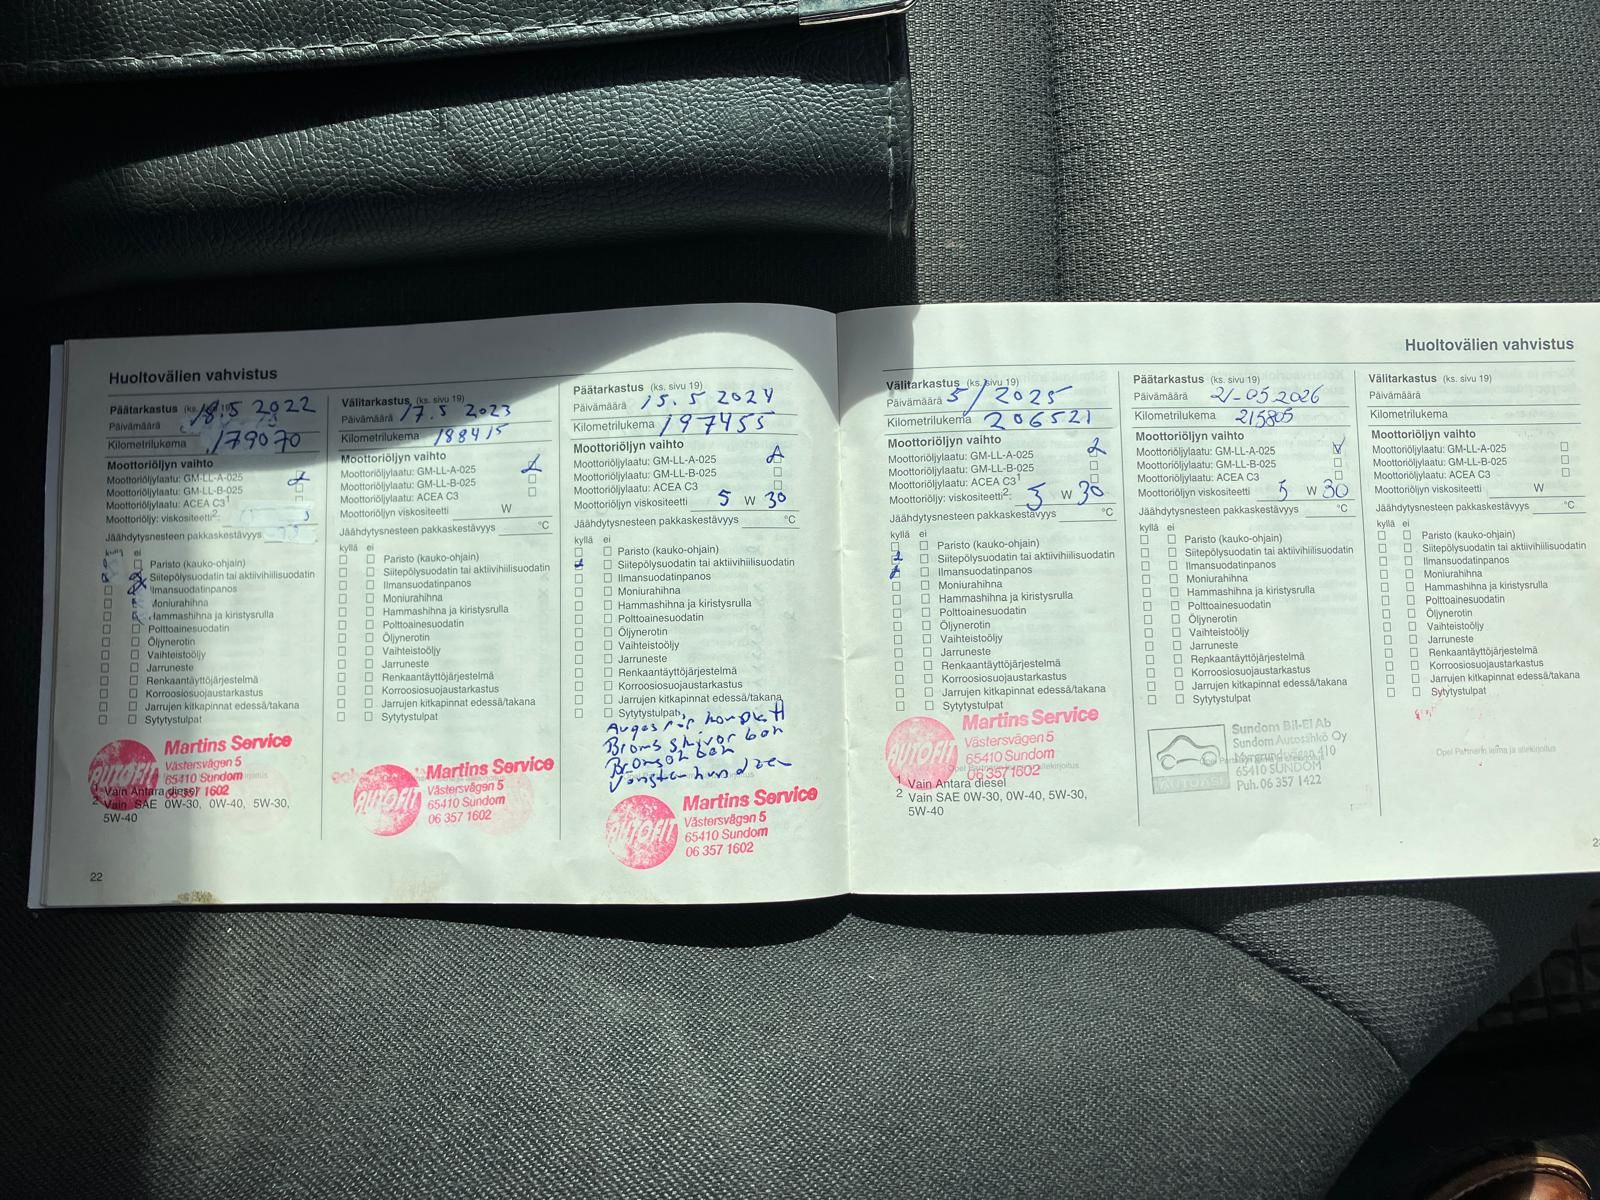 Huoltovälien vahvistus
Päätarkastus (ks. sivu 19)
Päivämäärä 18.5 2022
Kilometrilukema 179070
Moottoriöljyn vaihto
Moottoriöljylaatu: GM-LL-A-025
Moottoriöljylaatu: GM-LL-B-025
Moottoriöljylaatu: ACEA C3¹
Moottoriöljy: viskositeetti²:
Jäähdytysnesteen pakkaskestävyys
kyllä ei
Paristo (kauko-ohjain)
Siitepölysuodatin tai aktiivihiilisuodatin
Ilmansuodatinpanos
Moniurahihna
Hammashihna ja kiristysrulla
Polttoainesuodatin
Öljynerotin
Vaihteistoöljy
Jarruneste
Renkaantäyttöjärjestelmä
Korroosiosuojaustarkastus
Jarrujen kitkapinnat edessä/takana
Sytytystulpat
AUTOFIT
Martins Service
Västersvägen 5
65410 Sundom
06 357 1602
¹ Vain Antara diesel
² Vain SAE 0W-30, 0W-40, 5W-30,
5W-40
22
Välitarkastus (ks. sivu 19)
Päivämäärä 17.5 2023
Kilometrilukema 188415
Moottoriöljyn vaihto
Moottoriöljylaatu: GM-LL-A-025
Moottoriöljylaatu: GM-LL-B-025
Moottoriöljylaatu: ACEA C3
Moottoriöljyn viskositeetti W
Jäähdytysnesteen pakkaskestävyys °C
kyllä ei
Paristo (kauko-ohjain)
Siitepölysuodatin tai aktiivihiilisuodatin
Ilmansuodatinpanos
Moniurahihna
Hammashihna ja kiristysrulla
Polttoainesuodatin
Öljynerotin
Vaihteistoöljy
Jarruneste
Renkaantäyttöjärjestelmä
Korroosiosuojaustarkastus
Jarrujen kitkapinnat edessä/takana
Sytytystulpat
AUTOFIT
Martins Service
Västersvägen 5
65410 Sundom
06 357 1602
Päätarkastus (ks. sivu 19)
Päivämäärä 15.5 2024
Kilometrilukema 197455
Moottoriöljyn vaihto
Moottoriöljylaatu: GM-LL-A-025
Moottoriöljylaatu: GM-LL-B-025
Moottoriöljylaatu: ACEA C3
Moottoriöljyn viskositeetti 5 W 30
Jäähdytysnesteen pakkaskestävyys °C
kyllä ei
Paristo (kauko-ohjain)
Siitepölysuodatin tai aktiivihiilisuodatin
Ilmansuodatinpanos
Moniurahihna
Hammashihna ja kiristysrulla
Polttoainesuodatin
Öljynerotin
Vaihteistoöljy
Jarruneste
Renkaantäyttöjärjestelmä
Korroosiosuojaustarkastus
Jarrujen kitkapinnat edessä/takana
Sytytystulpat
Avgasrör komplett
Broms skivor bak
AUTOFIT
Martins Service
Västersvägen 5
65410 Sundom
06 357 1602
Huoltovälien vahvistus
Välitarkastus (ks. sivu 19)
Päivämäärä 5/2025
Kilometrilukema 206521
Moottoriöljyn vaihto
Moottoriöljylaatu: GM-LL-A-025
Moottoriöljylaatu: GM-LL-B-025
Moottoriöljylaatu: ACEA C3¹
Moottoriöljy: viskositeetti²: 5 W 30
Jäähdytysnesteen pakkaskestävyys °C
kyllä ei
Paristo (kauko-ohjain)
Siitepölysuodatin tai aktiivihiilisuodatin
Ilmansuodatinpanos
Moniurahihna
Hammashihna ja kiristysrulla
Polttoainesuodatin
Öljynerotin
Vaihteistoöljy
Jarruneste
Renkaantäyttöjärjestelmä
Korroosiosuojaustarkastus
Jarrujen kitkapinnat edessä/takana
Sytytystulpat
AUTOFIT
Martins Service
Västersvägen 5
65410 Sundom
06 357 1602
¹ Vain Antara diesel
² Vain SAE 0W-30, 0W-40, 5W-30,
5W-40
Päätarkastus (ks. sivu 19)
Päivämäärä 21-05.2026
Kilometrilukema 215805
Moottoriöljyn vaihto
Moottoriöljylaatu: GM-LL-A-025
Moottoriöljylaatu: GM-LL-B-025
Moottoriöljylaatu: ACEA C3
Moottoriöljyn viskositeetti 5 W 30
Jäähdytysnesteen pakkaskestävyys °C
kyllä ei
Paristo (kauko-ohjain)
Siitepölysuodatin tai aktiivihiilisuodatin
Ilmansuodatinpanos
Moniurahihna
Hammashihna ja kiristysrulla
Polttoainesuodatin
Öljynerotin
Vaihteistoöljy
Jarruneste
Renkaantäyttöjärjestelmä
Korroosiosuojaustarkastus
Jarrujen kitkapinnat edessä/takana
Sytytystulpat
Sundom Bil-El Ab
Sundom Autosähkö Oy
410
65410 SUNDOM
Puh. 06 357 1422
Välitarkastus (ks. sivu 19)
Päivämäärä
Kilometrilukema
Moottoriöljyn vaihto
Moottoriöljylaatu: GM-LL-A-025
Moottoriöljylaatu: GM-LL-B-025
Moottoriöljylaatu: ACEA C3
Moottoriöljyn viskositeetti W
Jäähdytysnesteen pakkaskestävyys °C
kyllä ei
Paristo (kauko-ohjain)
Siitepölysuodatin tai aktiivihiilisuodatin
Ilmansuodatinpanos
Moniurahihna
Hammashihna ja kiristysrulla
Polttoainesuodatin
Öljynerotin
Vaihteistoöljy
Jarruneste
Renkaantäyttöjärjestelmä
Korroosiosuojaustarkastus
Jarrujen kitkapinnat edessä/takana
Sytytystulpat
Opel Partnerin leima ja allekirjoitus